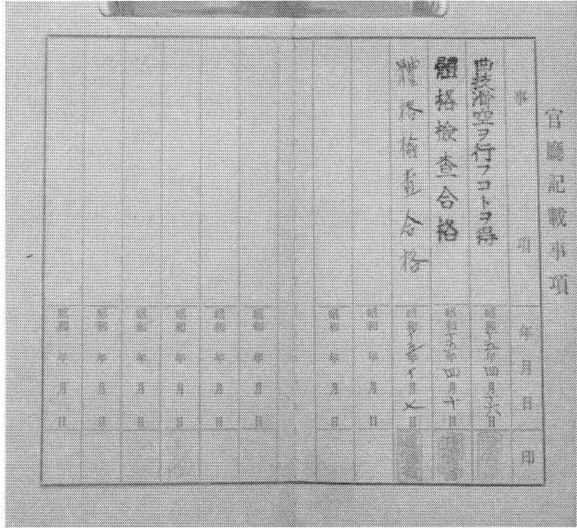 官廳記載事項
事項 年月日 印
曲技滑空ヲ行フコトヲ得 昭和五年四月六日
體格檢查合格 昭和五年四月十日
體格檢查合格 昭和 年 月 日
昭和 年 月 日
昭和 年 月 日
昭和 年 月 日
昭和 年 月 日
昭和 年 月 日
昭和 年 月 日
昭和 年 月 日
昭和 年 月 日